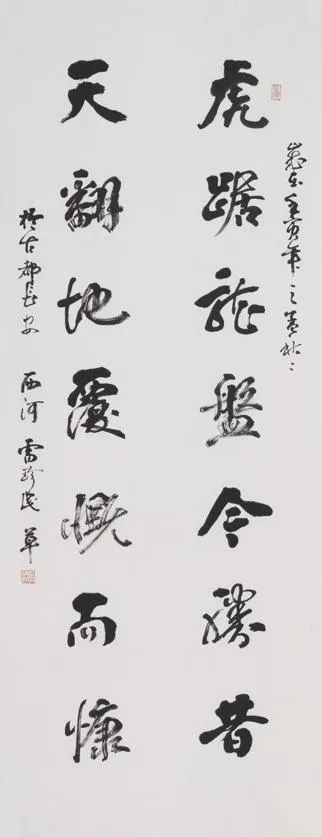 歲在壬寅年之秋
虎踞龍盤今勝昔
天翻地覆慨而慷
於古都長安 西河 雷珍民 草